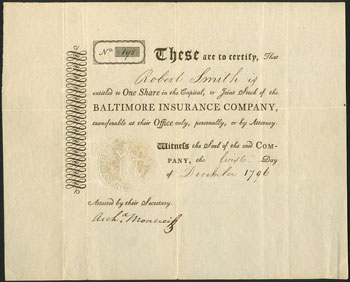 No. 198
These are to certify, That
Robert Smith is
entitled to One Share in the Capital, or Joint Stock of the
BALTIMORE INSURANCE COMPANY,
transferable at their Office only, personally, or by Attorney.
Witness the Seal of the said COM-
PANY, the Day
of December 1796
Attested by their Secretary.
Archd. Moncrieff